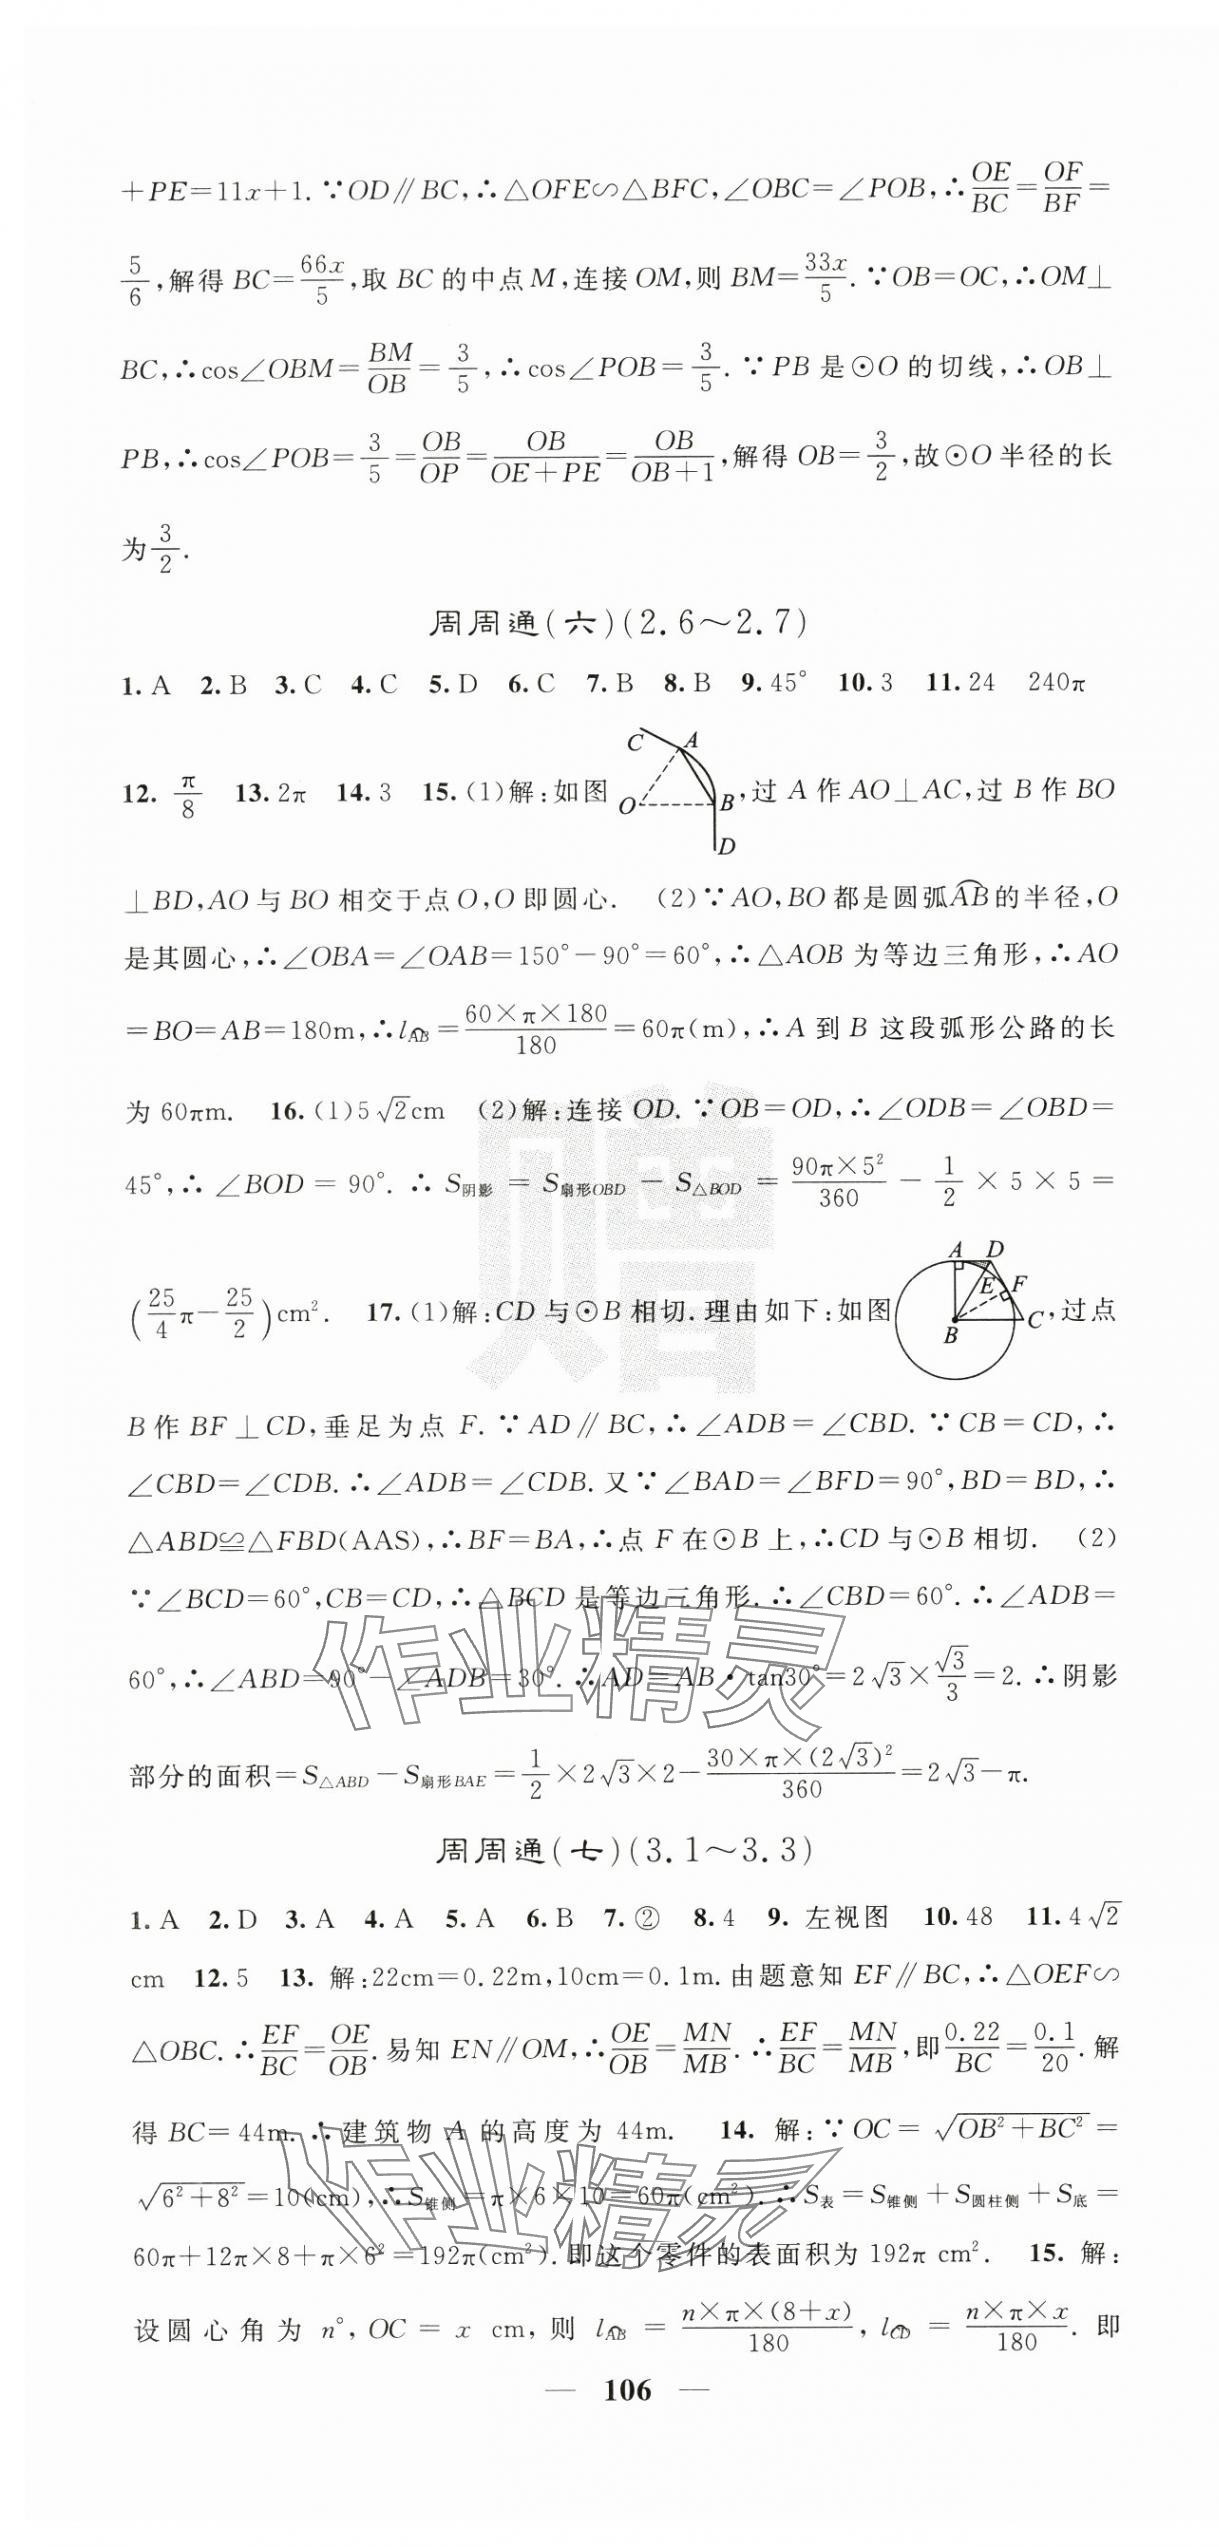 +PE=11x+1.∵OD∥BC,∴△OFE∽△BFC,∠OBC=∠POB,∴OE/BC=OF/BF=
5/6,解得 BC=66x/5,取 BC 的中点 M,连接 OM,则 BM=33x/5.∵OB=OC,∴OM⊥
BC,∴cos∠OBM=BM/OB=3/5,∴cos∠POB=3/5.∵PB 是⊙O 的切线,∴OB⊥
PB,∴cos∠POB=3/5=OB/OP=OB/(OE+PE)=OB/(OB+1),解得 OB=3/2,故⊙O 半径的长
为3/2.
周周通(六)(2.6～2.7)
1. A 2. B 3. C 4. C 5. D 6. C 7. B 8. B 9. 45° 10. 3 11. 24 240π
12. π/8 13. 2π 14. 3 15. (1)解:如图 C A O B D ,过 A 作 AO⊥AC,过 B 作 BO
⊥BD,AO 与 BO 相交于点 O,O 即圆心. (2)∵AO,BO 都是圆弧⌒AB的半径,O
是其圆心,∴∠OBA=∠OAB=150°-90°=60°,∴△AOB 为等边三角形,∴AO
=BO=AB=180m,∴l⌒AB=(60×π×180)/180=60π(m),∴A 到 B 这段弧形公路的长
为 60πm. 16. (1)5√2cm (2)解:连接 OD.∵OB=OD,∴∠ODB=∠OBD=
45°,∴∠BOD=90°.∴S阴影=S扇形OBD-S△BOD=(90π×5²)/360-1/2×5×5=
(25/4π-25/2)cm². 17. (1)解:CD 与⊙B 相切.理由如下:如图 A D E F B C ,过点
B 作 BF⊥CD,垂足为点 F.∵AD∥BC,∴∠ADB=∠CBD.∵CB=CD,∴
∠CBD=∠CDB.∴∠ADB=∠CDB.又∵∠BAD=∠BFD=90°,BD=BD,∴
△ABD≌△FBD(AAS),∴BF=BA,∴点 F 在⊙B 上,∴CD 与⊙B 相切. (2)
∵∠BCD=60°,CB=CD,∴△BCD 是等边三角形.∴∠CBD=60°.∴∠ADB=
60°,∴∠ABD=90°-∠ADB=30°.∴AD=AB·tan30°=2√3×√3/3=2.∴阴影
部分的面积=S△ABD-S扇形BAE=1/2×2√3×2-(30×π×(2√3)²)/360=2√3-π.
周周通(七)(3.1～3.3)
1. A 2. D 3. A 4. A 5. A 6. B 7. ② 8. 4 9. 左视图 10. 48 11. 4√2
cm 12. 5 13. 解:22cm=0.22m,10cm=0.1m.由题意知 EF∥BC,∴△OEF∽
△OBC.∴EF/BC=OE/OB.易知 EN∥OM,∴OE/OB=MN/MB.∴EF/BC=MN/MB,即0.22/BC=0.1/20.解
得 BC=44m.∴建筑物 A 的高度为 44m. 14. 解:∵OC=√(OB²+BC²)=
√(6²+8²)=10(cm),∴S锥侧=π×6×10=60π(cm²).∴S表=S锥侧+S圆柱侧+S底=
60π+12π×8+π×6²=192π(cm²).即这个零件的表面积为 192π cm². 15. 解:
设圆心角为 n°,OC=x cm,则 l⌒AB=(n×π×(8+x))/180,l⌒CD=(n×π×x)/180.即
— 106 —
赠
作业精灵
作业精灵